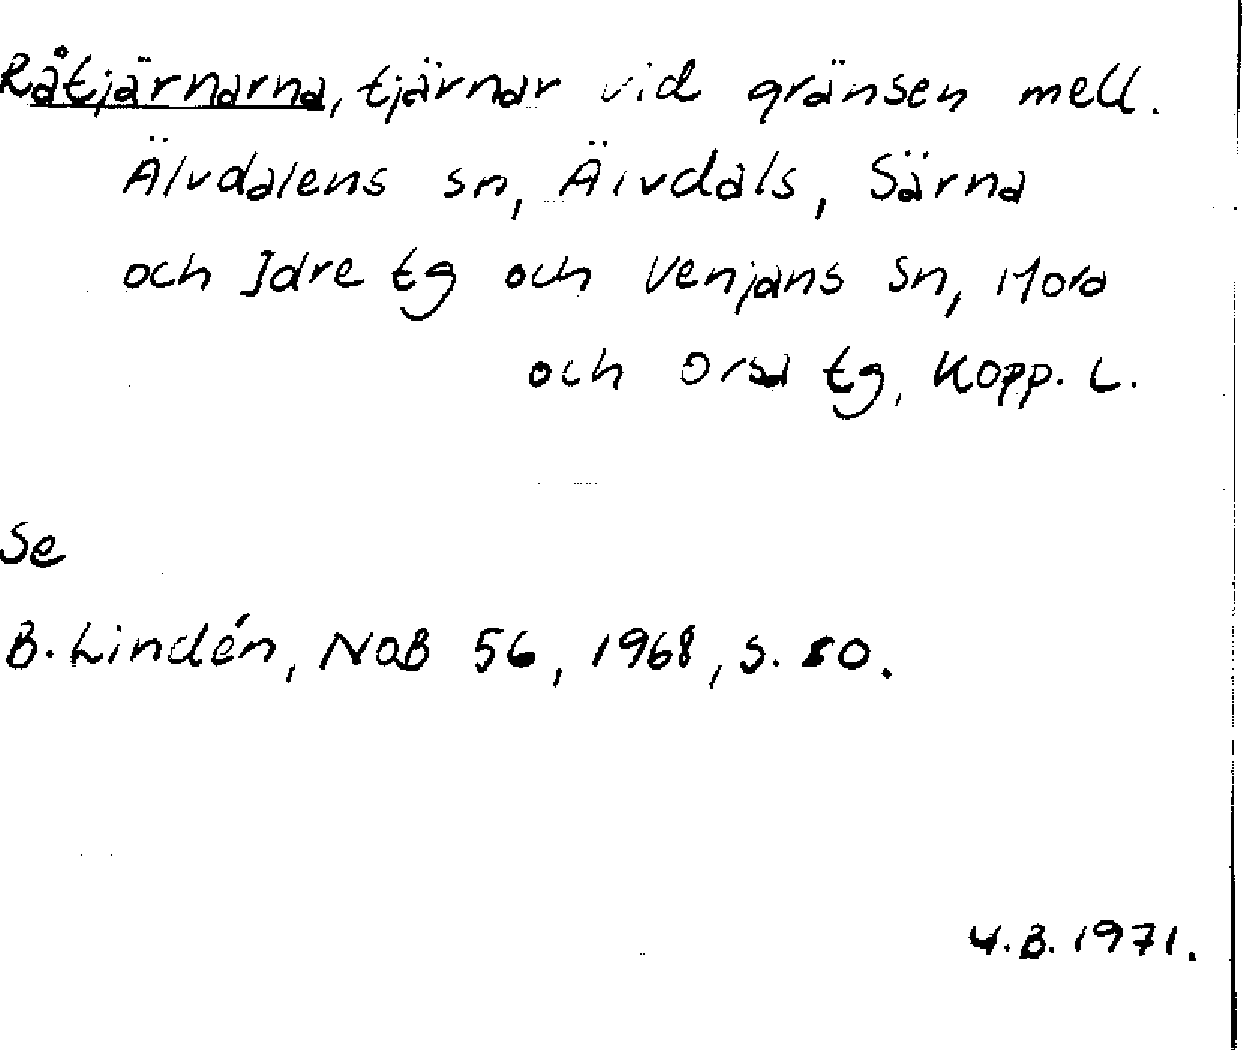 Råtjärnarna, tjärnar vid gränsen mell.
Älvdalens sn, Älvdals, Särna
och Idre tg och Venjans sn, Mora
och Orsa tg, Kopp. L.
Se
B. Lindén, NoB 56, 1968, s. 80.
U.B. 1971.